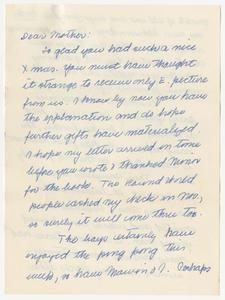 Dear Mother:
So glad you had such a nice
Xmas. You must have thought
it strange to receive only E. picture
from us. I know by now you have
the explanation and do hope
further gifts have materialized
I hope my letter arrived on time
before you wrote & thanked
for the books. The
people cashed my check in Nov,
so surely it will come thru too.
The boys certainly have
enjoyed the ping pong this
week, so have Marvin & I. Perhaps